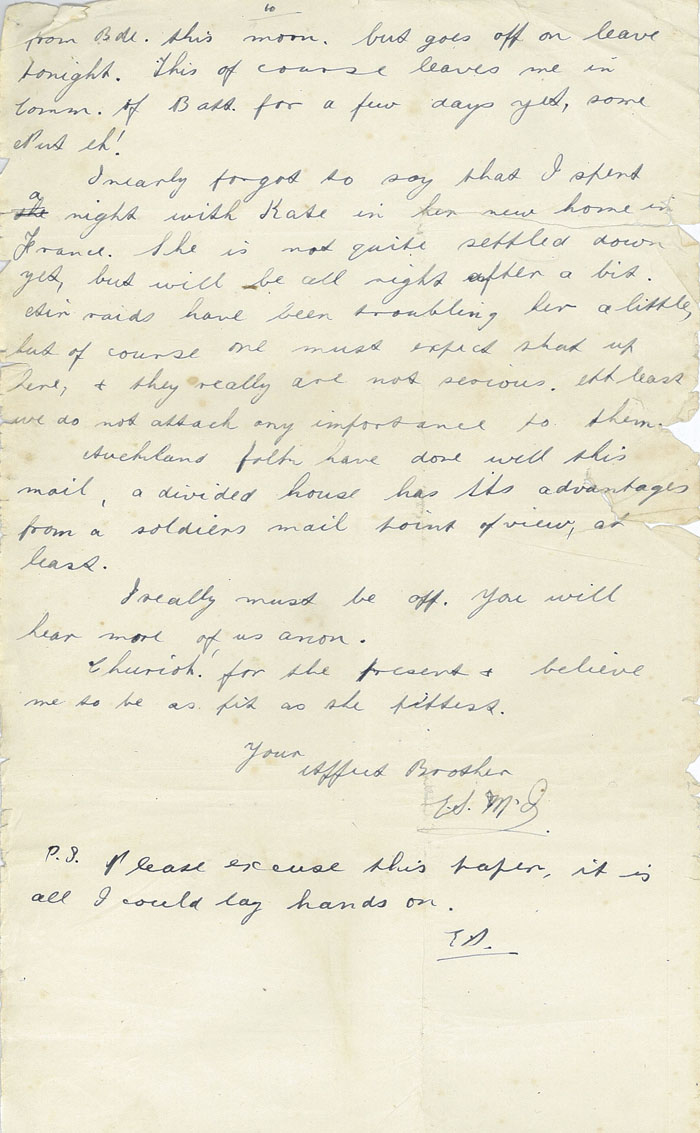 10
from Bde. this morn. but goes off on leave
tonight. This of course leaves me in
Comm. of Batt. for a few days yet, some
Put eh!
I nearly forgot to say that I spent
a night with Kate in her new home in
France. She is not quite settled down
yet, but will be all right after a bit.
Air raids have been troubling her a little,
but of course one must expect that up
here, & they really are not serious. At least
we do not attach any importance to them.
Auckland folk have done well this
mail, a divided house has its advantages
from a soldiers mail point of view, at
least.
I really must be off. You will
hear more of us anon.
Cheerioh! for the present & believe
me to be as fit as the fittest.
Your
Affect Brother
P.S. Please excuse this paper, it is
all I could lay hands on.